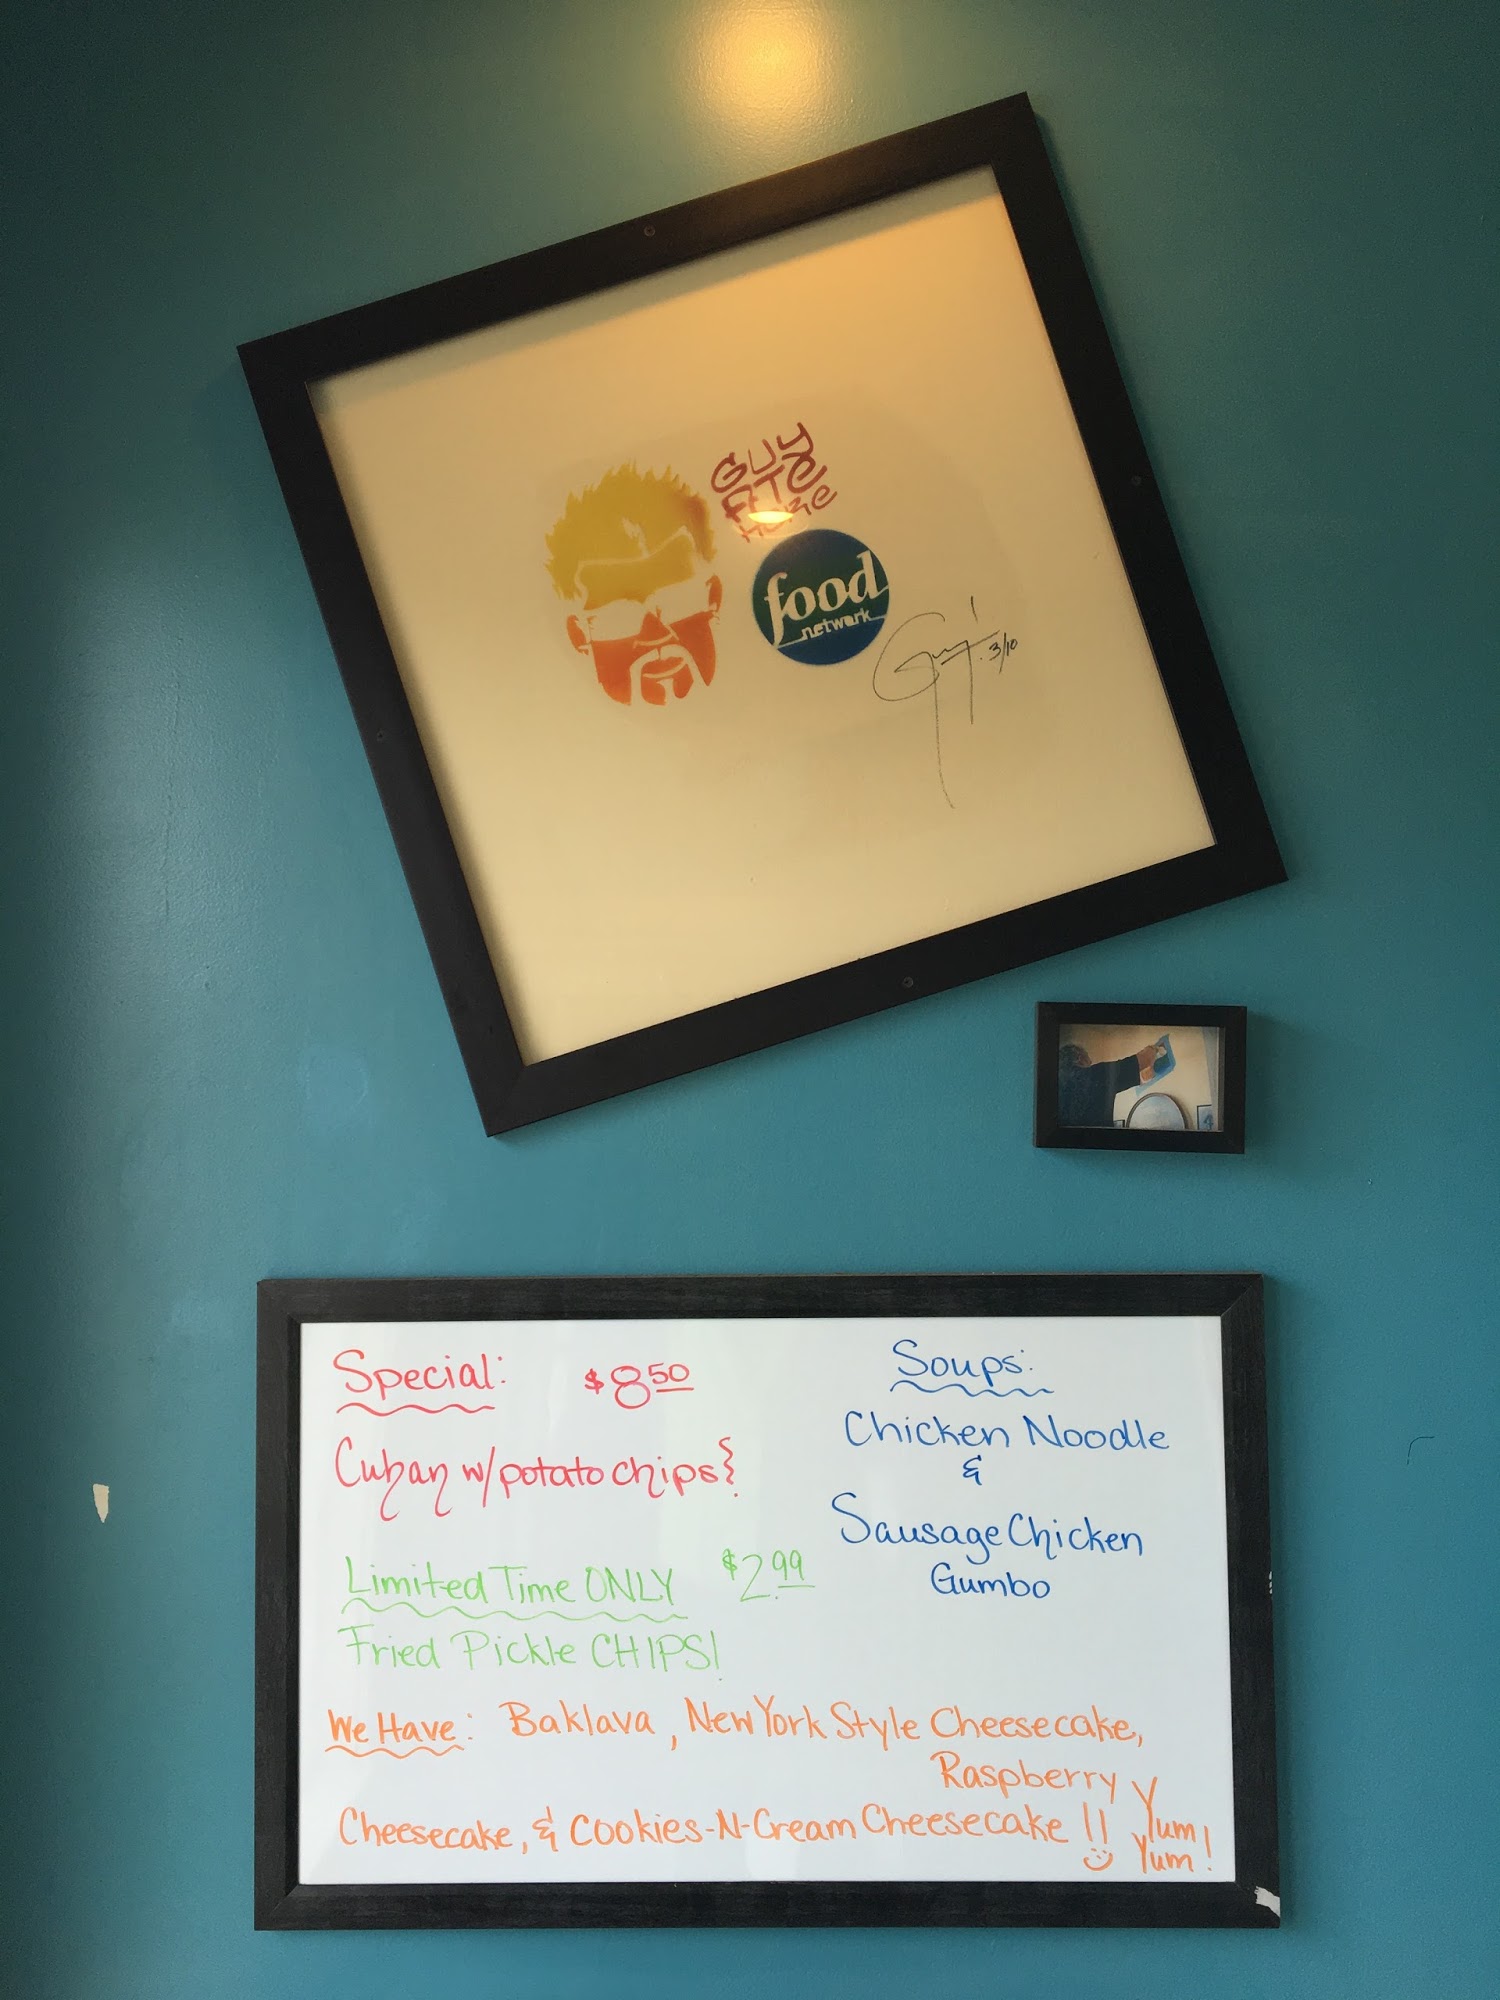 GUY
ATE
HERE
food
network
Guy 3/10
Special: $8.50
Cuban w/potato chips
Limited Time ONLY $2.99
Fried Pickle CHIPS!
Soups:
Chicken Noodle
&
Sausage Chicken
Gumbo
We Have: Baklava, New York Style Cheesecake,
Raspberry
Cheesecake, & Cookies-N-Cream Cheesecake !!
Yum
Yum!